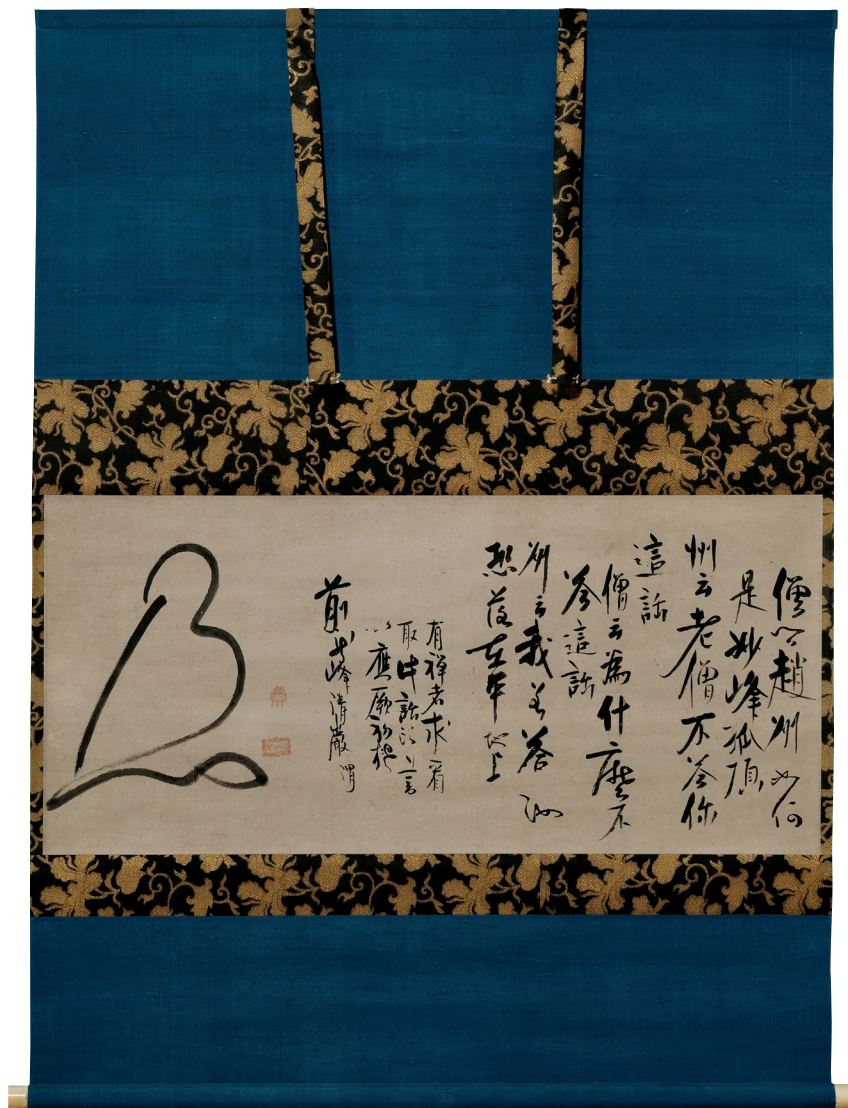 僧問趙州如何
是妙峰孤頂
州云老僧不答你
這話
僧云為什麼不
答這話
州云我若答汝
恐落在平地上
有禪者求
取此話頭
以應厥
前大峰清巖